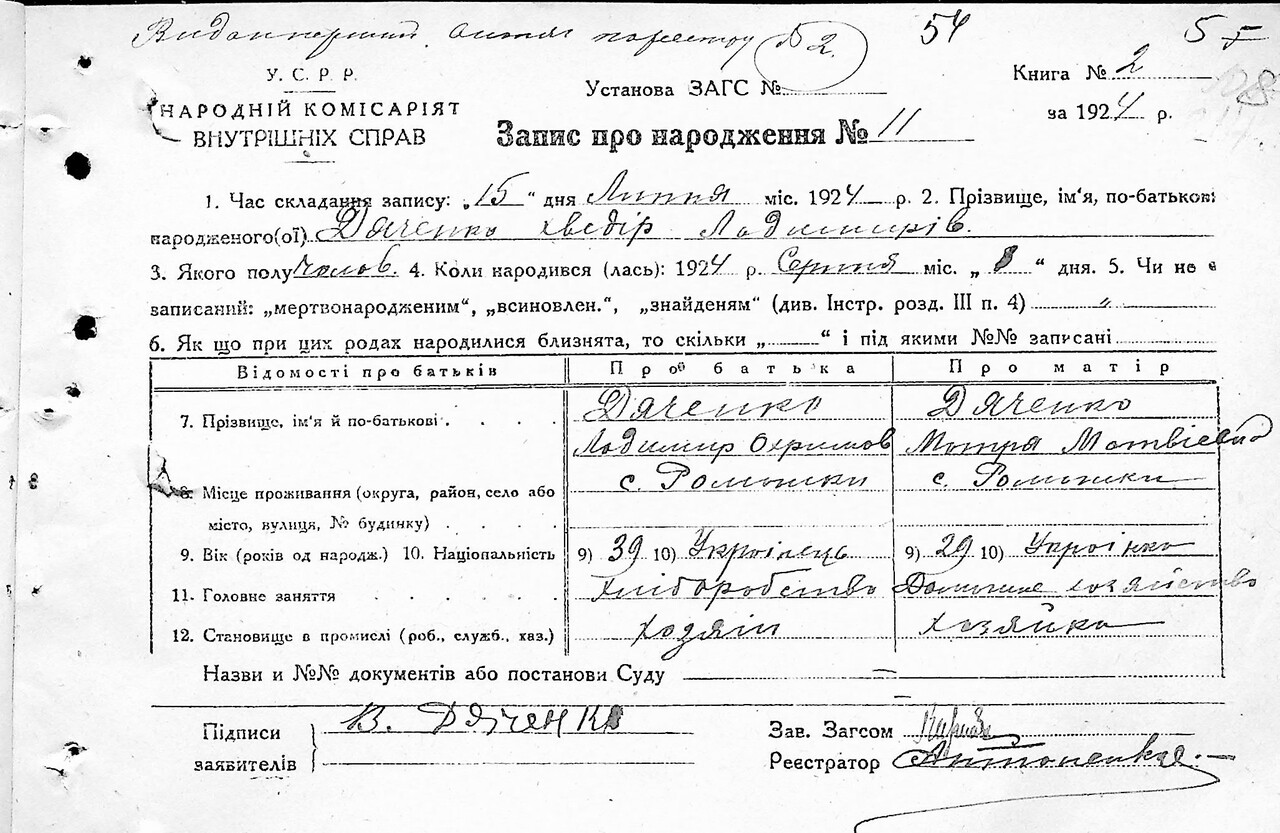 54 5
У. С. Р. Р.
НАРОДНІЙ КОМІСАРІЯТ
ВНУТРІШНІХ СПРАВ
Установа ЗАГС № 2.
Книга № 2
за 1924 р.
Запис про народження № 11
1. Час складання запису: „15“ дня Липня міс. 1924 р. 2. Прізвище, ім'я, по-батькові
народженого(ої) Дяченко Хведір Ладимирів.
3. Якого полу чолов. 4. Коли народився (лась): 1924 р. Серпня міс. „8“ дня. 5. Чи не є
записаний: „мертвонародженим“, „всиновлен.“, „знайденям“ (див. Інстр. розд. III п. 4) „
6. Як що при цих родах народилися близнята, то скільки „ “ і під якими №№ записані
Відомості про батьків Про батька Про матір
7. Прізвище, ім'я й по-батькові . . . . Дяченко Дяченко
Ладимир Охримов Мотря Матвієвна
8. Місце проживання (округа, район, село або с. Ромашки с. Ромашки
місто, вулиця, № будинку) . . . .
9. Вік (років од народж.) 10. Національність 9) 39 10) Українець 9) 29 10) Українка
11. Головне заняття . . . . . Хліборобство Домашне хозяйство
12. Становище в промислі (роб., служб., хаз.) Ходяін Хозяйка
Назви и №№ документів або постанови Суду =
Підписи В. Дяченко Зав. Загсом
заявителів Реєстратор Антоненко